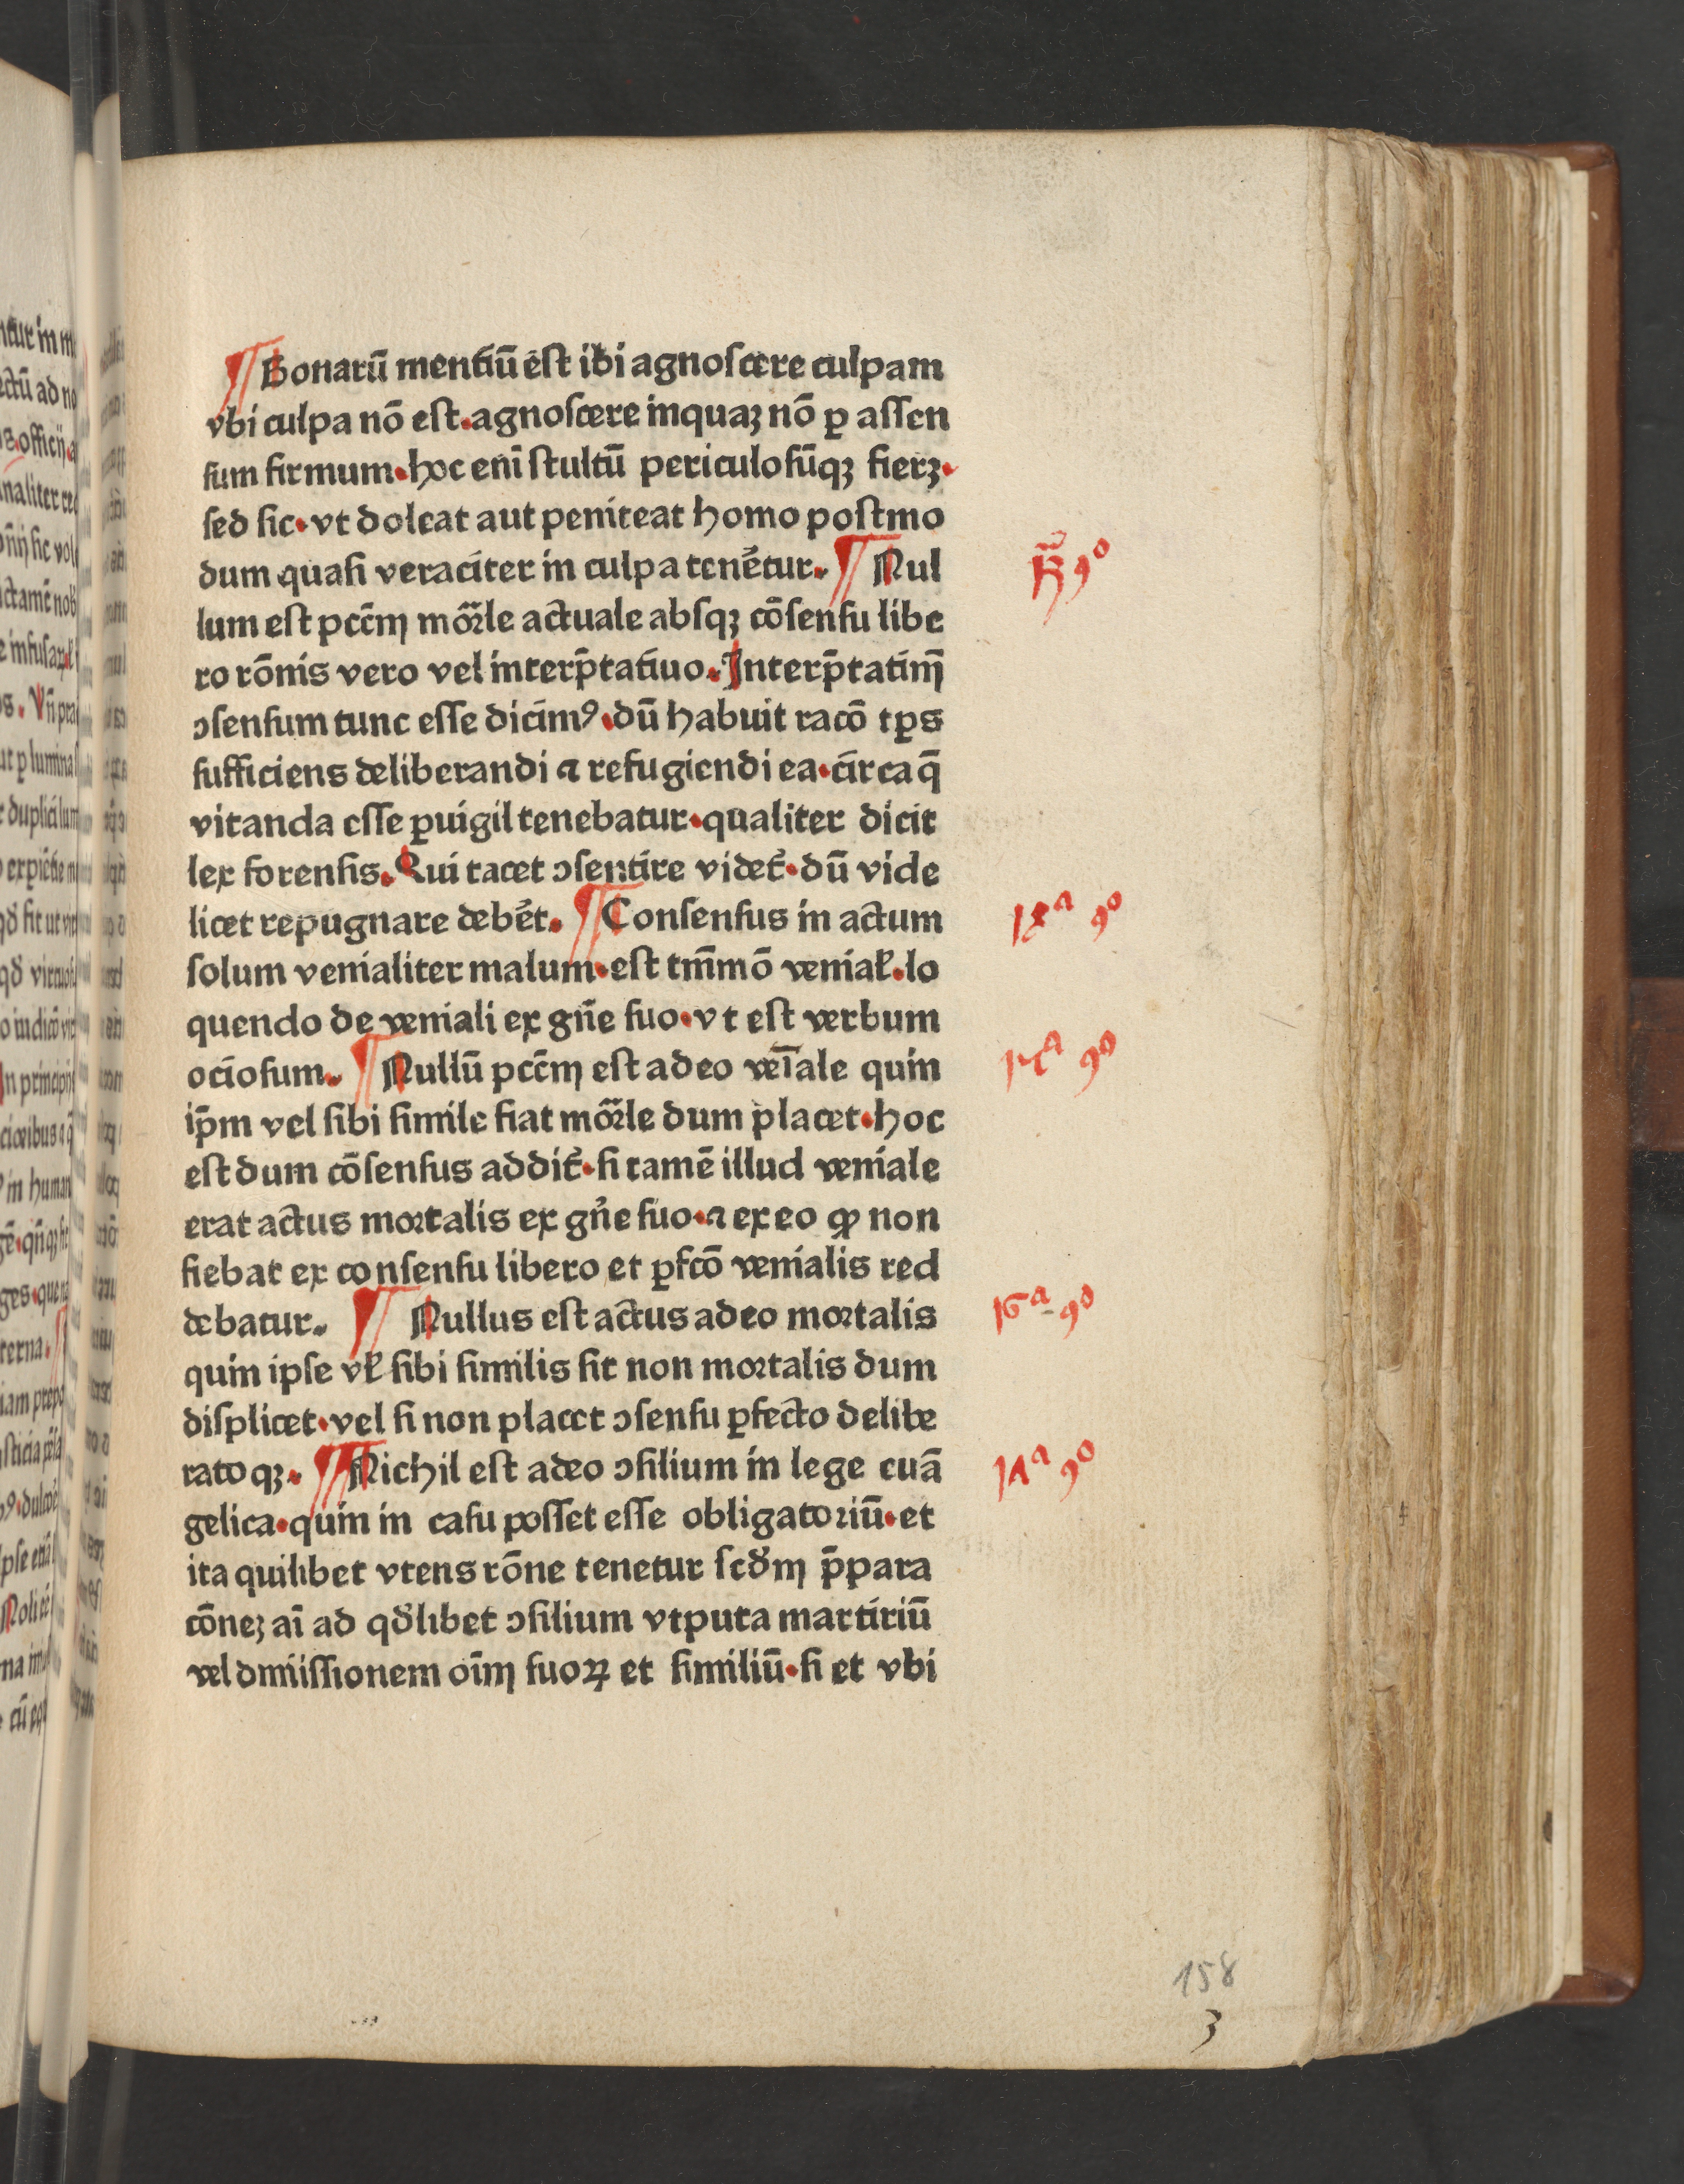 ¶ Bonarū mentiū est ibi agnoscere culpam
vbi culpa nō est.agnoscere inquaꝫ nō ꝑ assen
sum firmum.hoc enī stultū periculosūqꝫ fierꝫ.
sed sic.vt doleat aut peniteat homo postmo
dum quasi veraciter in culpa tenēretur. ¶ Nul
lum est pccm̄ mōrle actuale absqꝫ cōsensu libe
ro rōnis vero vel interp̄tatiuo.Interp̄tatim̄
ɔsensum tunc esse dicimꝰ.dū habuit racō tꝑs
sufficiens deliberandi ⁊ refugiendi ea.circa q̄
vitanda esse ꝑuigil tenebatur.qualiter dicit
lex forensis.Qui tacet ɔsentire videt̄.dū vide
licet repugnare debet. ¶ Consensus in actum
solum venialiter malum.est tm̄mō venial̄.lo
quendo de veniali ex gn̄e suo.vt est verbum
ociosum. ¶ Nullū pccm̄ est adeo vēiale quin
ip̄m vel sibi simile fiat mōrle dum placet.hoc
est dum cōsensus addit̄.si tamē illud veniale
erat actus mortalis ex gn̄e suo.⁊ ex eo ꝙ non
fiebat ex consensu libero et ꝑfcō venialis red
debatur. ¶ Nullus est actus adeo mortalis
quin ipse vl̄ sibi similis sit non mortalis dum
displicet.vel si non placet ɔsensu ꝑfecto delibe
rato qꝫ. ¶ Nichil est adeo ɔsilium in lege euā
gelica.quin in casu posset esse obligatoriū.et
ita quilibet vtens rōne tenetur scd̄m p̄para
cōneꝫ aī ad qd̄libet ɔsilium vtputa martiriū
vel dmiissionem oīm suoꝝ et similiū.si et vbi
158
3